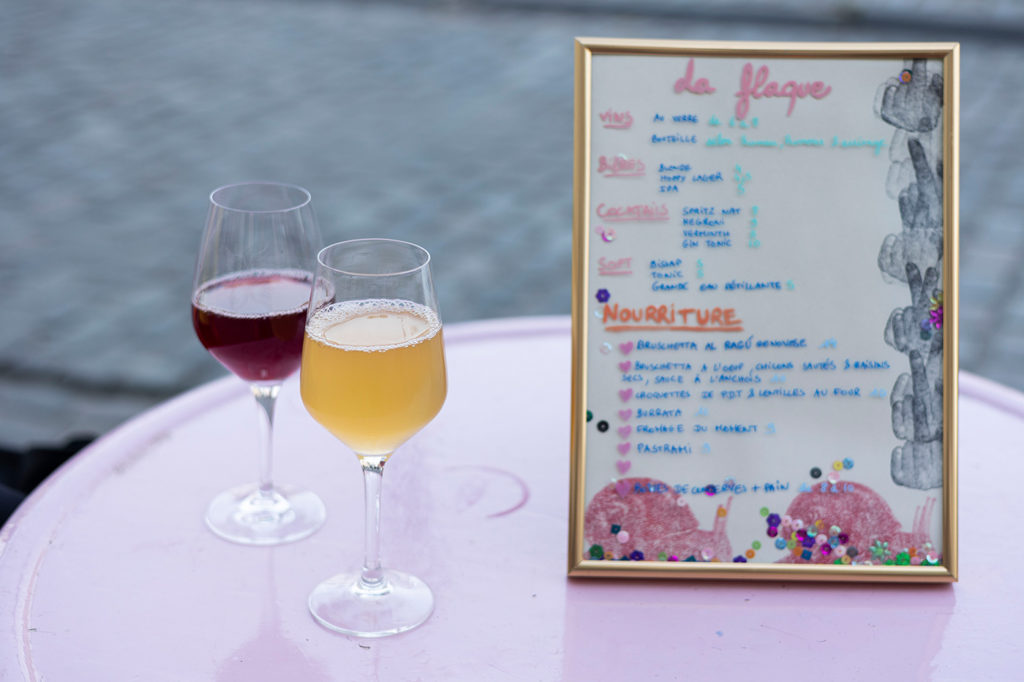 La flaque
VINS AU VERRE de 5 à 8
BOUTEILLE selon
BIÈRES BLONDE
HOPPY LAGER
IPA
COCKTAILS SPRITZ NAT
NEGRONI
VERMINTH
GIN TONIC
SOFT BISSAP
TONIC
GRANDE EAU PÉTILLANTE
NOURRITURE
BRUSCHETTA AL RAGÚ GENOVESE
BRUSCHETTA A L'OEUF, SAUTÉS & RAISINS
SECS, SAUCE À L'ANCHOIS
CROQUETTES DE P.D.T & LENTILLES AU FOUR
BURRATA
FROMAGE DU MOMENT
PASTRAMI
DE CONSERVES + PAIN